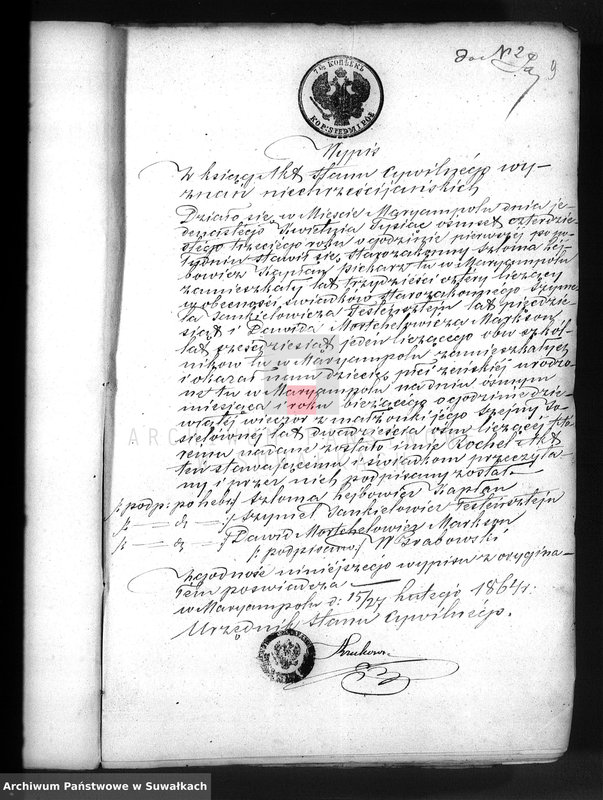 do № 2
9
7½ КОПѢЕКЪ
KOP: SIEDM I PÓŁ
Wypis
z księgi Akt stanu cywilnego wy-
znań niechrześcijańskich
Działo się w Mieście Maryampolu dnia je-
denastego Kwietnia Tysiąc ośmset czterdzie-
stego trzeciego roku o godzinie pierwszej po po-
łudniu stawił się starozakonny Szloma Hej-
bowicz Kapłan Piekarz tu w Maryampolu
zamieszkały lat trzydzieści cztery liczący
w obecności świadków starozakonnego Szyme-
la Jankielowicza Festensztejn lat pięćdzie-
siąt i Dawida Mostchelowicza Markson
lat sześćdziesiąt jeden liczącego obu szkol-
ników tu w Maryampolu zamieszkałych
i okazał nam dziecię płci żeńskiej urodzo-
ne tu w Maryampolu na dniu ósmym
miesiąca i roku bieżącego o godzinie dzie-
wiątej wieczór z małżonki jego Szejny Jo-
sielównej lat dwadzieścia ośm liczącej któ-
remu nadane zostało imie Rochel Akt
ten stawającemu i świadkom przeczyta-
ny i przez nich podpisany został.
/: podp: po hebr: / Szloma Hejbowicz Kapłan
/: — — do — :/ Szymel Jankielowicz Festensztejn
/: — — do — :/ Dawid Mostchelowicz Markson
/: podpisano :/ W Grabowski
Zgodność niniejszego wypisu z orygina-
łem poświadcza
w Maryampolu d: 15/27 lutego 1864 r.
Urzędnik Stanu Cywilnego.
ARCHIWUM PAŃSTWOWE
SUWAŁKI
Archiwum Państwowe w Suwałkach